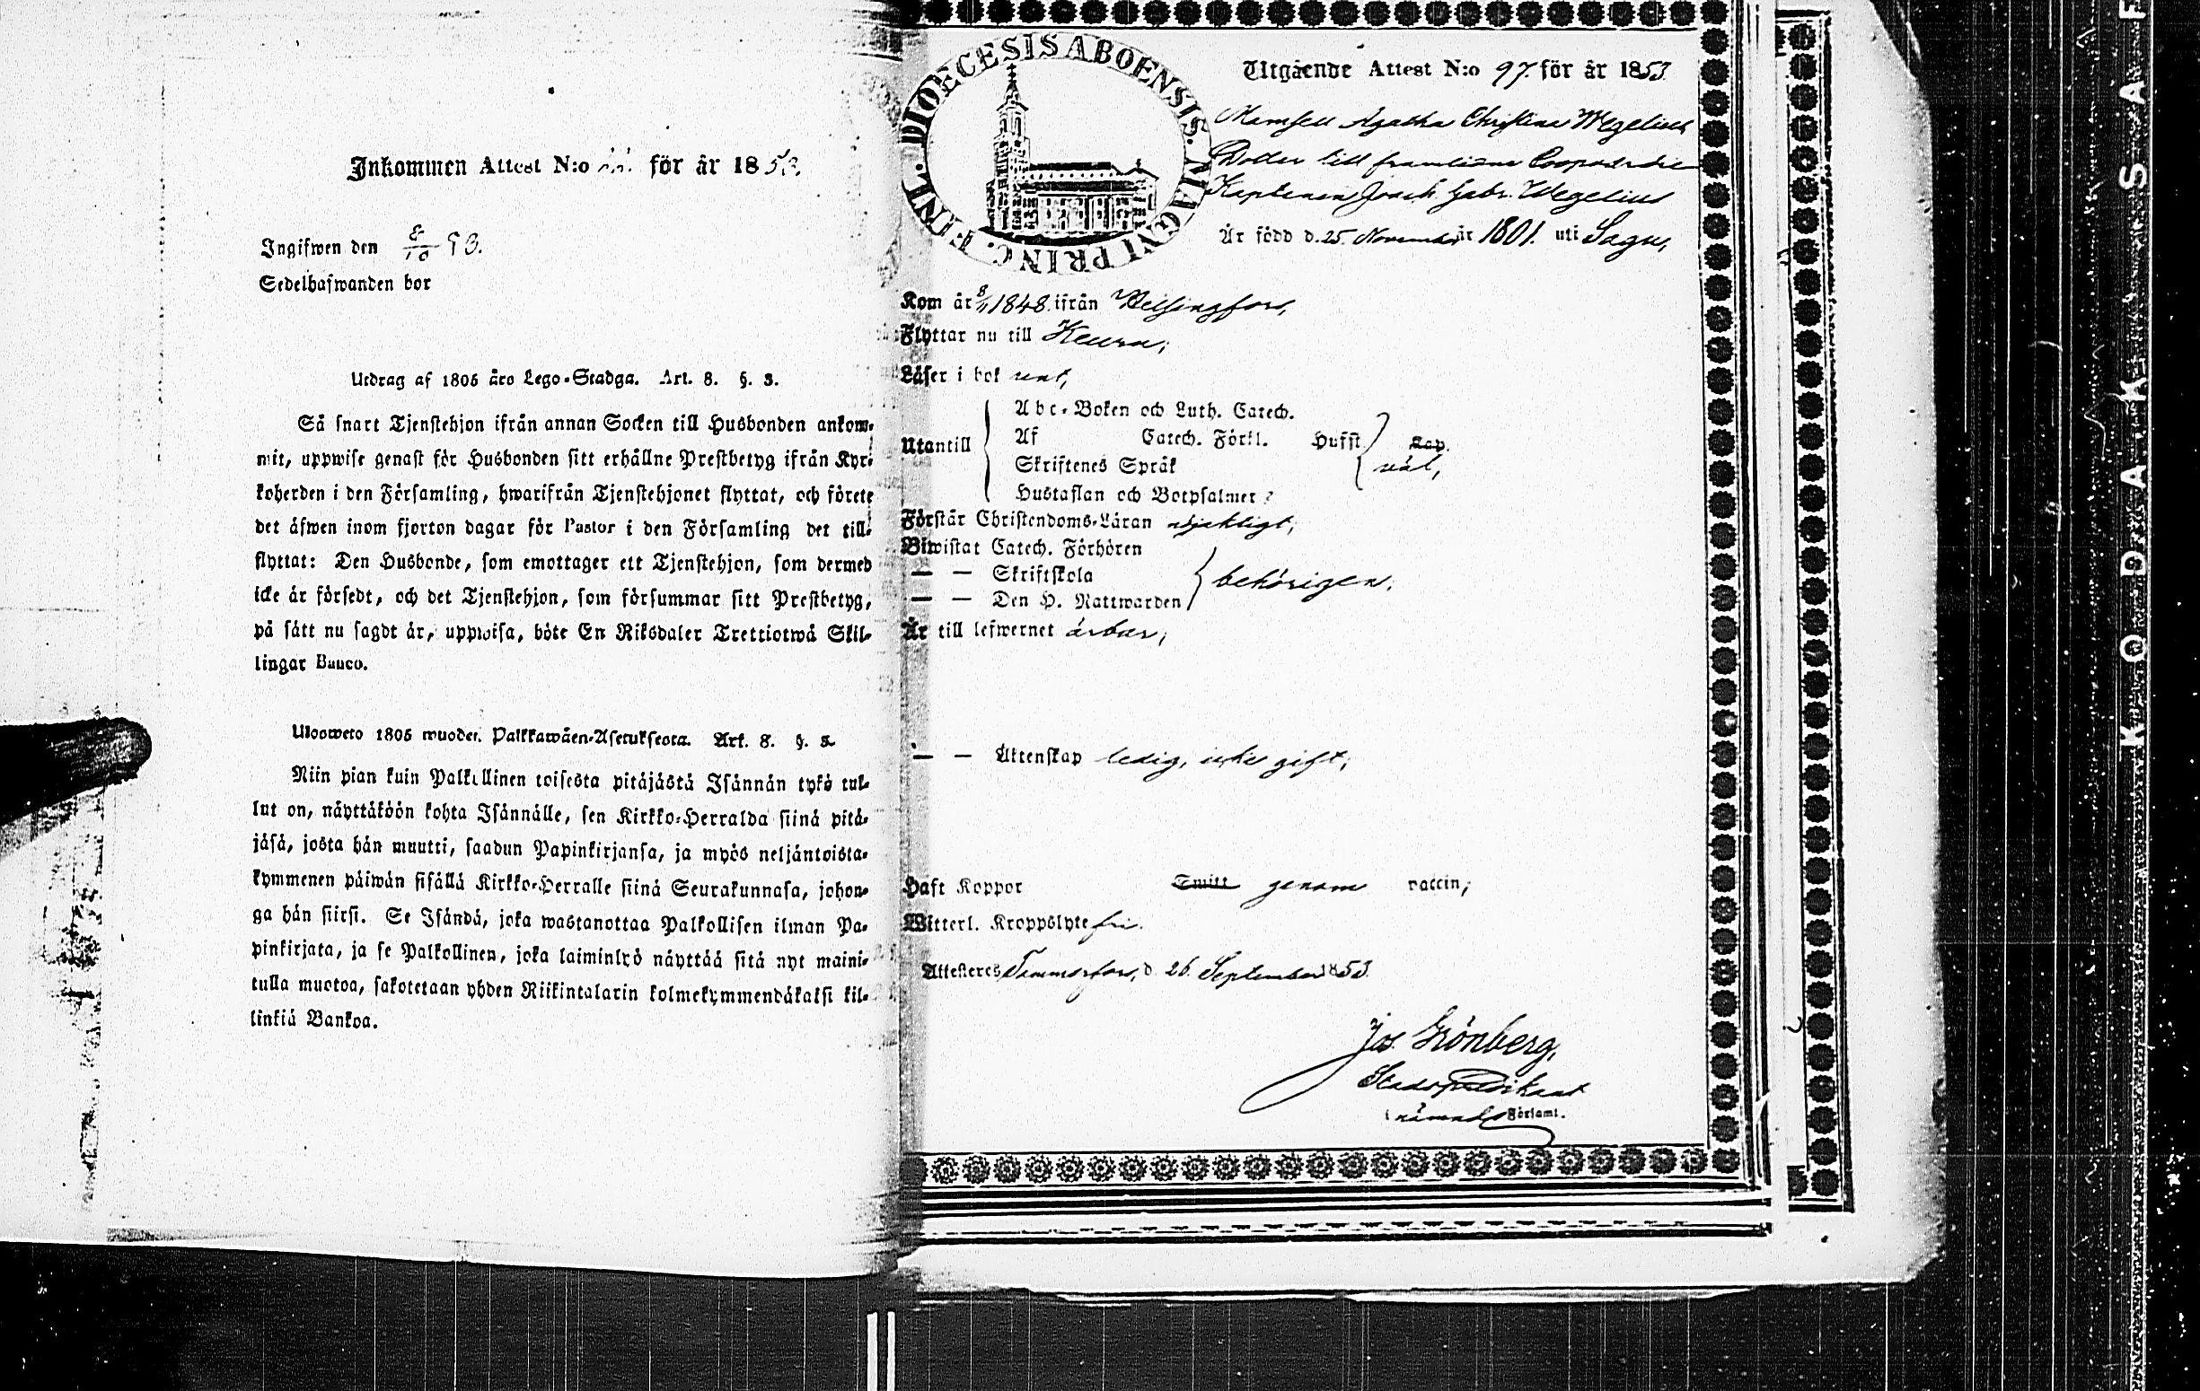 Inkommen Attest N:o för år 1853.
Ingifwen den 8/10 53.
Sedelhafwanden bor
Utdrag af 1805 åro Lego-Stadga. Art. 8. §. 3.
Så snart Tjenstehjon ifrån annan Socken till Husbonden ankom-
mit, uppwise genast för Husbonden sitt erhållne Prestbetyg ifrån Kyr-
koherden i den Församling, hwarifrån Tjenstehjonet flyttat, och förete
det äfwen inom fjorton dagar för Pastor i den Församling det till-
flyttat: Den Husbonde, som emottager ett Tjenstehjon, som dermed
icke är försedt, och det Tjenstehjon, som försummar sitt Prestbetyg,
på sätt nu sagdt är, uppwisa, böte En Riksdaler Trettiotwå Skil-
lingar Banco.
Ulosweto 1805 wuoden Palkkawäen-Asetuksesta. Art. 8. §. 3.
Niin pian kuin Palkollinen toisesta pitäjästä Isännän tykö tul-
lut on, näyttäköön kohta Isännälle, sen Kirkko-Herralda siinä pitä-
jäsä, josta hän muutti, saadun Papinkirjansa, ja myös neljäntoista-
kymmenen päiwän sisällä Kirkko-Herralle siinä Seurakunnasa, johon-
ga hän siirsi. Se Isändä, joka wastanottaa Palkollisen ilman Pa-
pinkirjata, ja se Palkollinen, joka laiminlyö näyttää sitä nyt maini-
tulla muotoa, sakotetaan yhden Riikintalarin kolmekymmendäkaksi kil-
linkiä Bankoa.
DIOECESIS ABOENSIS. MAGNI PRINC. FINL.
Utgående Attest N:o 97. för år 1853.
Mamsell Agatha Christina Wegelius
Dotter till framlidne
Kaptenen Joach. Gabr. Wegelius
Är född d. 25. November år 1801. uti Sagu,
Kom år 8/11 1848. ifrån Helsingfors,
Flyttar nu till Keuru,
Läser i bok rent,
Utantill
Abc-Boken och Luth. Catech.
Af Catech. Förkl. Hufst. Kap.
Skriftenes Språk väl,
Hustaflan och Botpsalmer
Förstår Christendoms-Läran nöjaktigt,
Biwistat Catech. Förhören
— — Skriftskola behörigen.
— — Den H. Nattwarden
Är till lefwernet ärbar,
— — Äktenskap ledig, icke gift,
Haft Koppor Smitt genom vaccin,
Witterl. Kroppslyte fri.
Attesteres Tammerfors, d. 26. September 1853.
Jos. Grönberg,
Stadspredikant
i nämnde Församl.
KODAK SAF